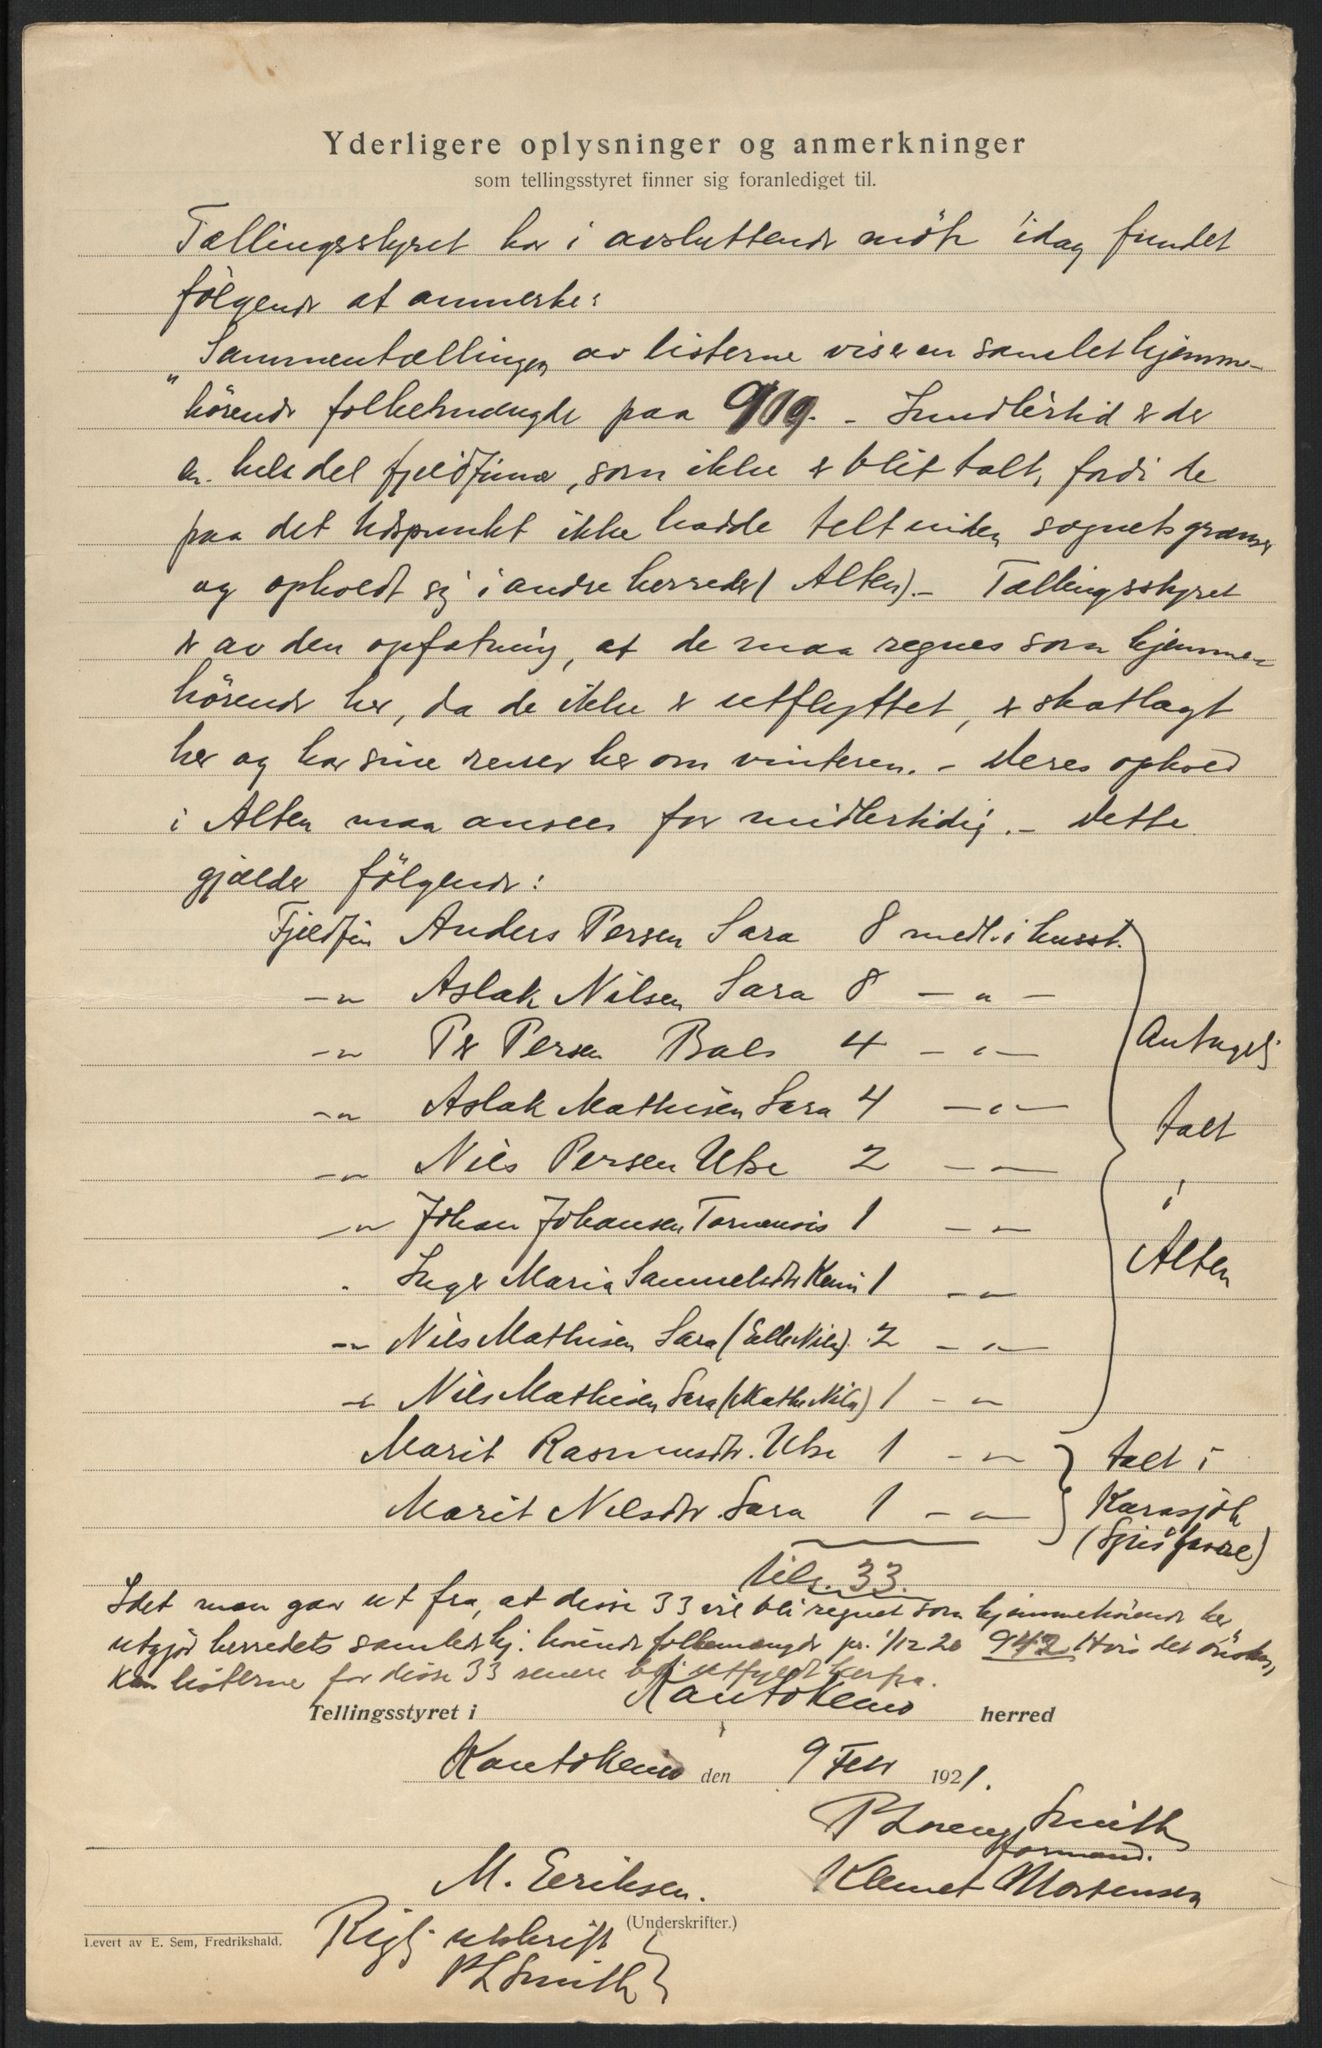 Yderligere oplysninger og anmerkninger
som tellingsstyret finner sig foranlediget til.
Tællingsstyret har i avsluttende möte idag fundet
følgende at anmerke:
"Sammentællingen av listerne viser en samlet hjemme-
hørende folkemængde paa 909. - Imidlertid er der
en hel del fjeldfinner, som ikke er blit talt, fordi de
paa det tidspunkt ikke hadde telt inden sognets grænser
og opholdt sig i andre herreder (Alten). - Tællingsstyret
er av den opfatning, at de maa regnes som hjemme-
hørende her, da de ikke er utflyttet, er skatlagt
her og har sine rener her om vinteren. - Deres ophold
i Alten maa ansees for midlertidig. - Dette
gjælder følgende:
Fjeldfin Anders Persen Sara 8 medl. i husst.
-"- Aslak Nilsen Sara 8 -"-
-"- Per Persen Bals 4 -"- Antagelig
-"- Aslak Mathisen Sara 4 -"- talt
-"- Nils Persen Utse 2 -"-
-"- Johan Johansen Tornensis 1 -"- i
Inger Maria Samuelsdtr Kemi 1 -"- Alten
-"- Nils Mathisen Sara (Elle Nils) 2 -"-
-"- Nils Mathisen Sara (Mathe Nils) 1 -"-
Marit Rasmusdtr. Utse 1 -"- talt i
Marit Nilsdtr. Sara 1 -"- Karasjok
tils. 33.
Idet man gaar ut fra, at disse 33 vil bli regnet som hjemmehørende her
utgjør herredets samlede hj. hørende folkemængde pr. 1/12 20 942. Hvis det ønskes,
kan listerne for disse 33 senere bli utfyldt herfra.
Tellingsstyret i Kautokeino herred
Kautokeino den 9 Febr 1921.
P Lorenz Smith
formand.
M. Eriksen. Klemet Mortensen
(Underskrifter.)
Rigtig utskrift
P L Smith
Levert av E. Sem, Fredrikshald.